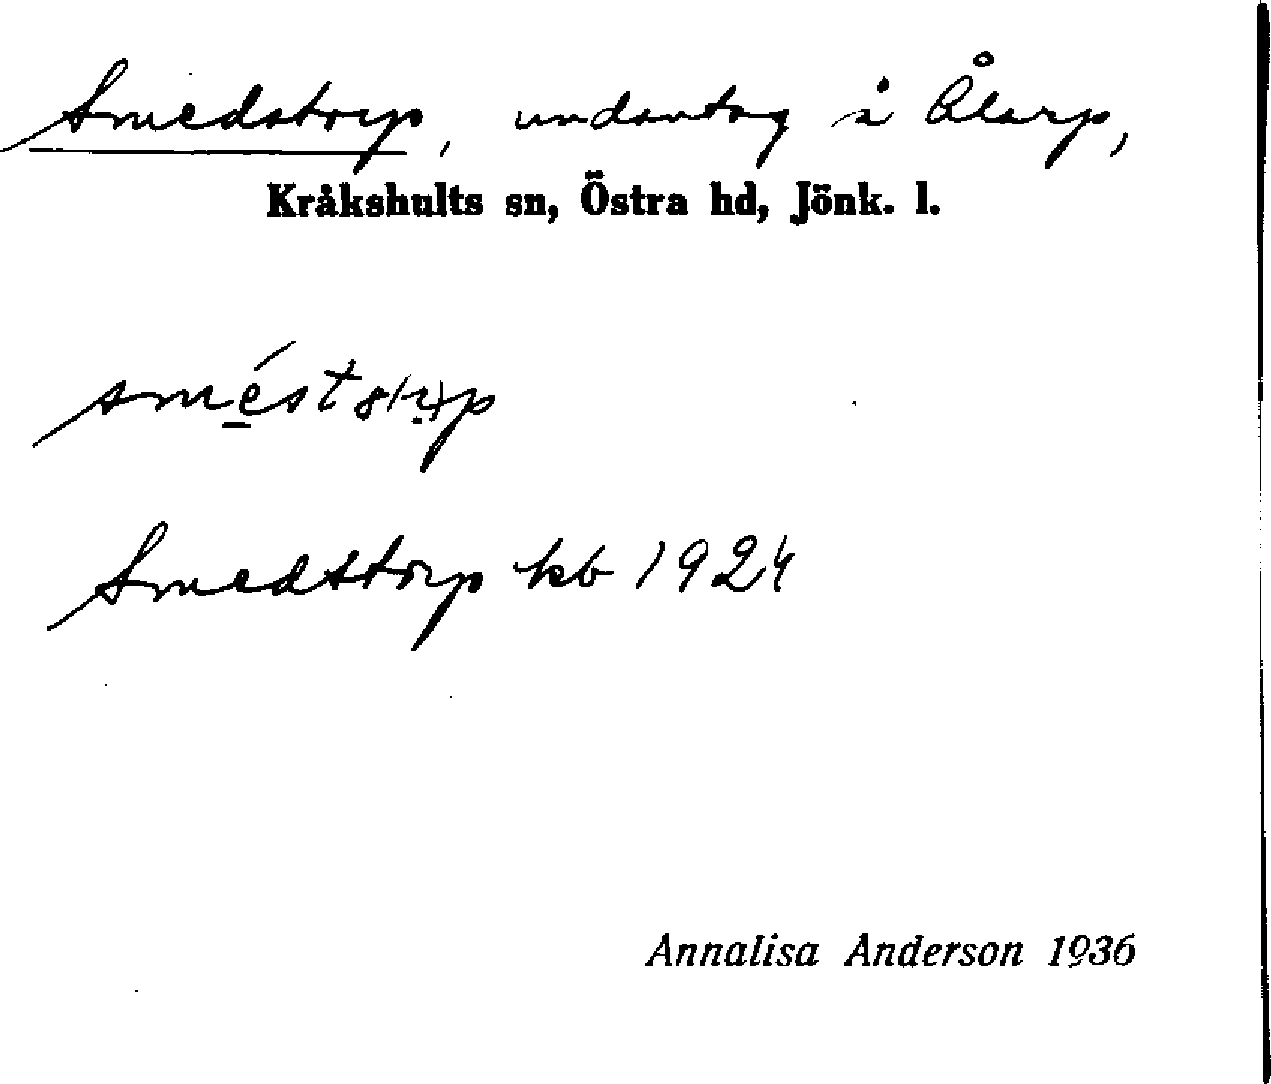 Smedstorp, undantag å Ålarp,
Kråkshults sn, Östra hd, Jönk. l.
Smedstorp kb 1924
Annalisa Anderson 1936